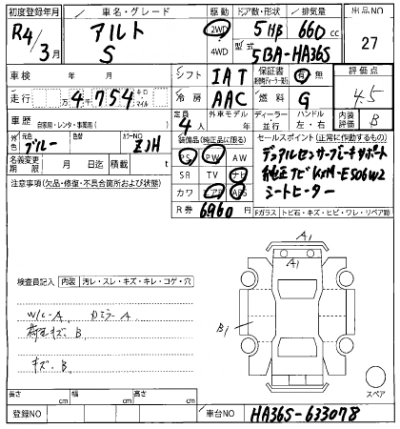 初度登録年月 車名・グレード 駆動 ドア数・形状 排気量 出品NO
R4/3月 アルト S 2WD 4WD 5HB 660cc 27
型式 5BA-HA36S
車検 年 月 シフト IAT 保証書 有 無 評価点
走行 4,754 キロ マイル 冷房 AAC 燃料 G 4.5
車歴 自家用・レンタ・事業用( ) 定員 4人 外車モデル 年 ディーラー 並行 ハンドル 左・右 内装評価 B
色 元色 ブルー カラーNO ZJH 装備品(純正品に限る) セールスポイント(正常に作動するもの)
名義変更期限 月 日迄 積載 t PS PW AW デュアルセンサーブレーキサポート
SR TV ナビ 純正ナビ KXM-E506W2
注意事項(欠品・修復・不具合箇所および状態) カワ エアB ABS シートヒーター
R券 6960円 Fガラス トビ石・キズ・ヒビ・ワレ・リペア跡
A1
A1
検査員記入 内装 汚レ・スレ・キズ・キレ・コゲ・穴
B1
W/C-A カミラーA
キズ.B
スペア
長さ cm 幅 cm 高さ cm
登録NO 車台NO HA36S-633078